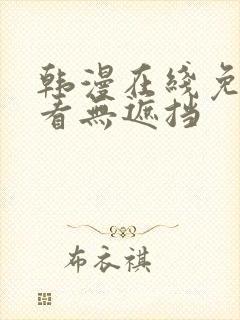 韩漫在线免
看無遮挡
布衣祺